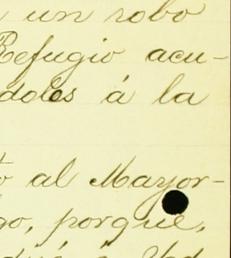 un robo
Refugio acu-
doles á la
al Mayor-
go, porque,